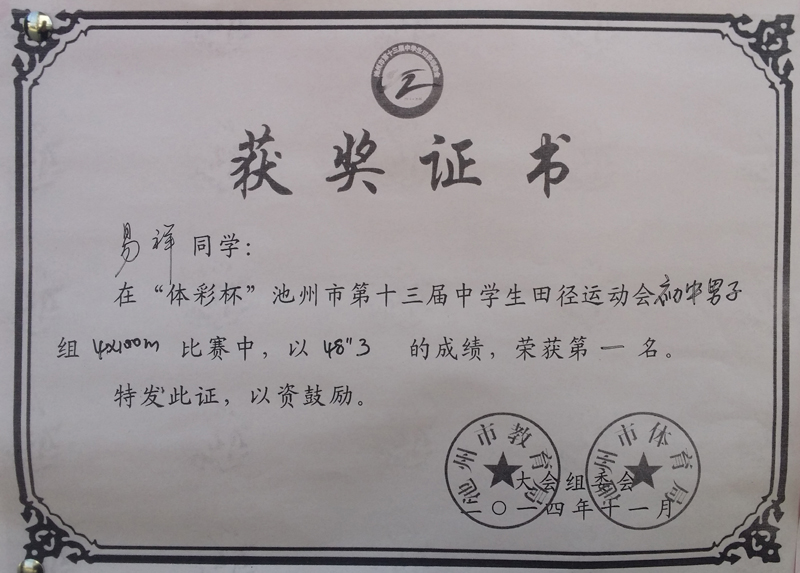 池州市第十三届中学生田径运动会
获奖证书
易祥同学：
在“体彩杯”池州市第十三届中学生田径运动会初中男子
组4x100m比赛中，以48"3的成绩，荣获第一名。
特发此证，以资鼓励。
池州市教育局
池州市体育局
大会组委会
二〇一四年十一月